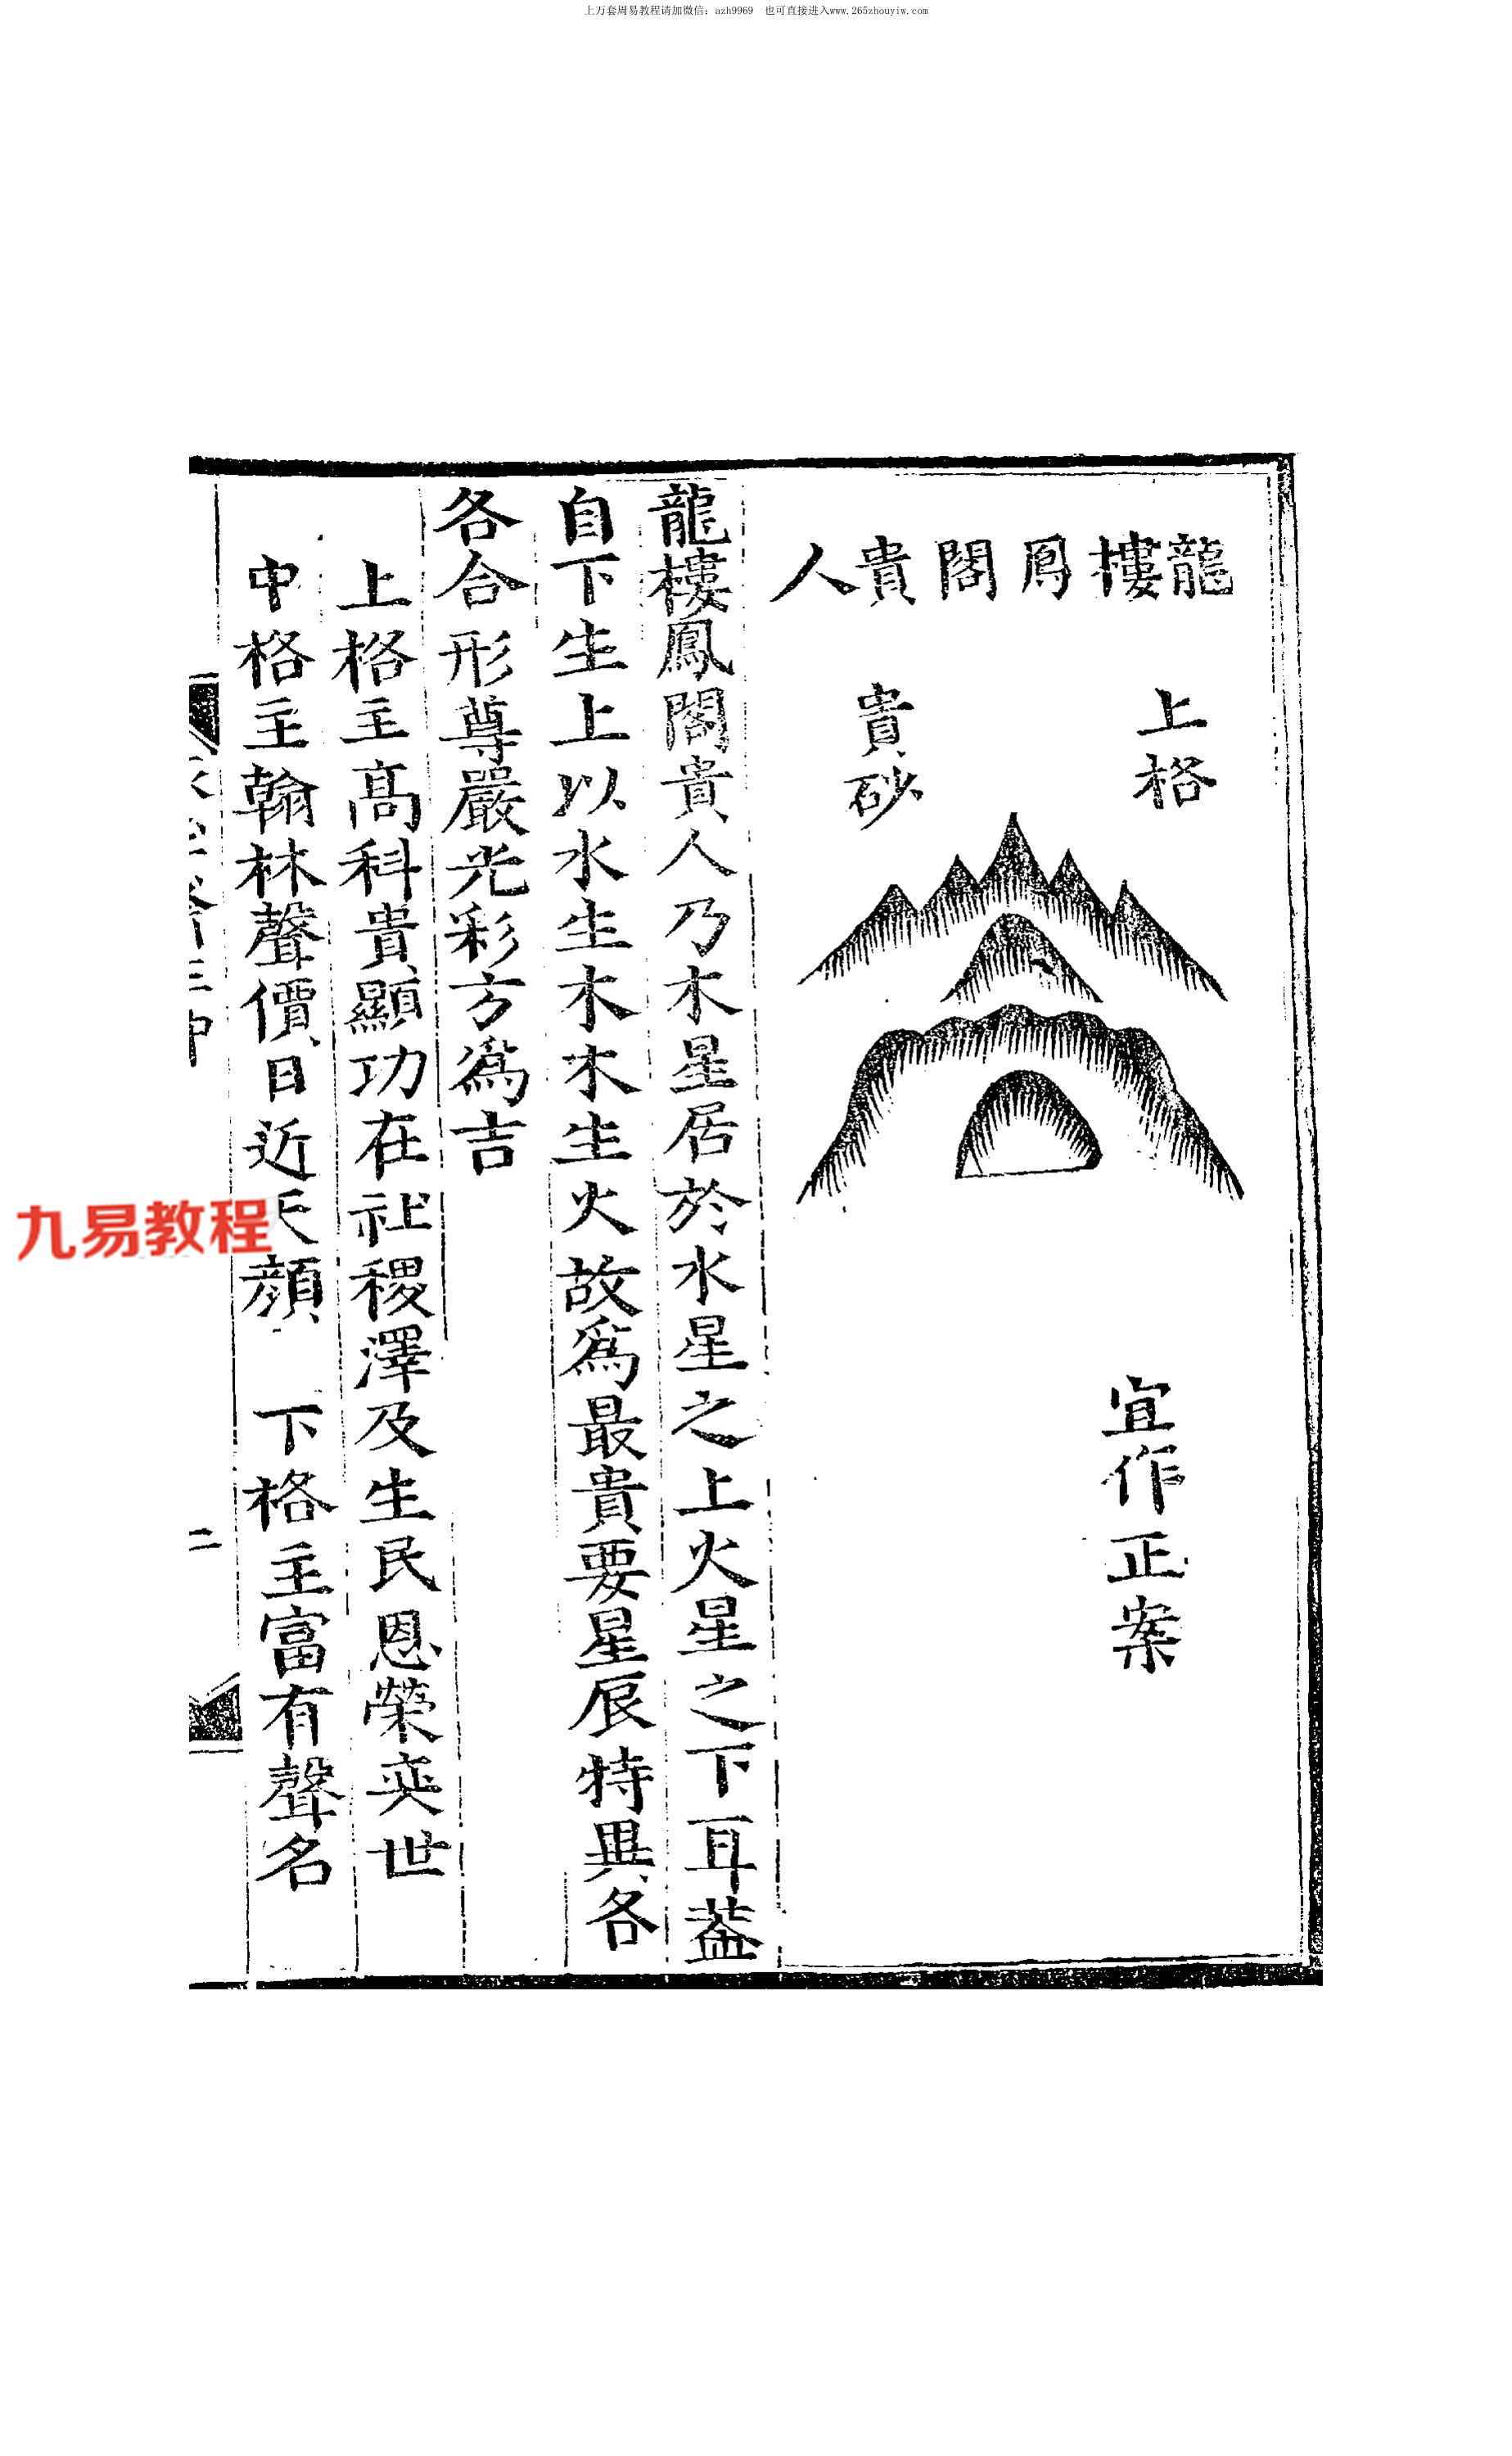 上万套周易教程请加微信：azh9969　也可直接进入www.265zhouyiw.com
龍樓鳳閣貴人
上格
貴砂
宜作正案
龍樓鳳閣貴人乃木星居於水星之上火星之下耳蓋
自下生上以水生木木生火故爲最貴要星辰特異各
各合形尊嚴光彩方爲吉
上格主高科貴顯功在社稷澤及生民恩榮奕世
中格主翰林聲價日近天顔　下格主富有聲名
二
九易教程